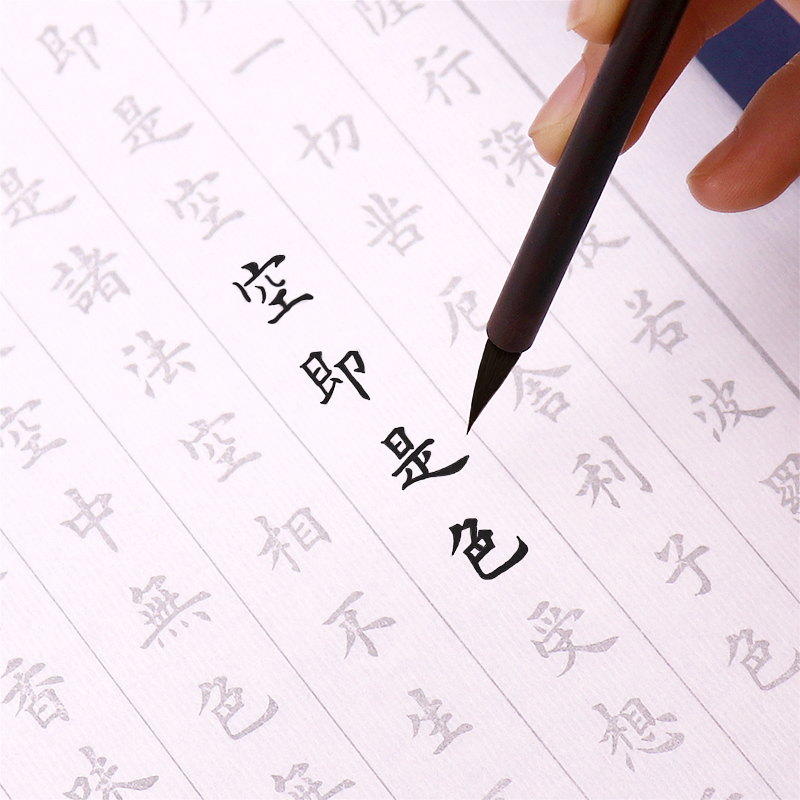 行深若波羅
一切苦厄舍利子色
即是空空即是色受想
是諸法空相不生
空中無色無
香味